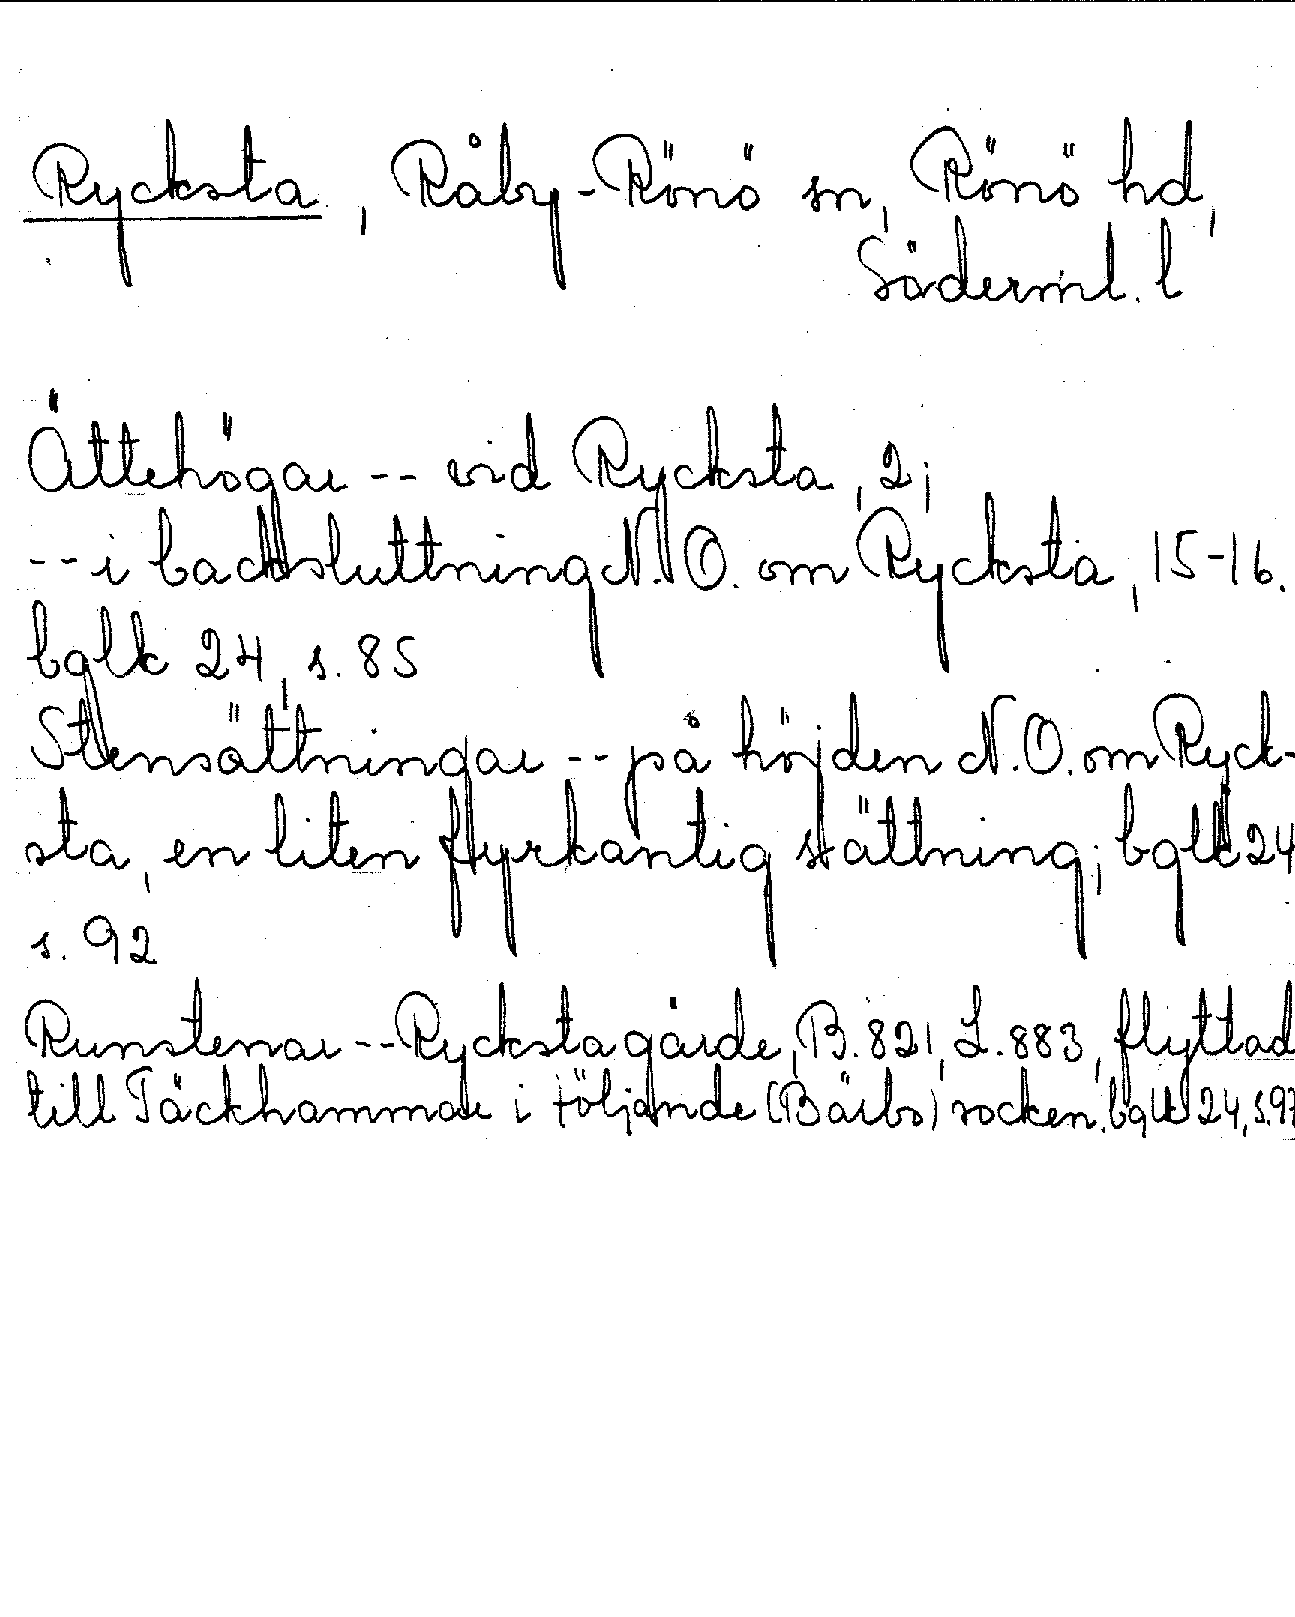 Rycksta, Råby-Rönö sn, Rönö hd,
Söderml. l
Ättehögar -- vid Rycksta, 2;
-- i backsluttning N.O. om Rycksta, 15-16.
bglk 24, s. 85
Stensättningar -- på höjden N.O. om Ryck-
sta, en liten fyrkantig stättning; bglk 24
s. 92
Runstenar -- Rycksta gärde, B. 821, L. 883, flyttad
till Täckhammar i följande (Bärbo) socken. bglk 24, s. 97